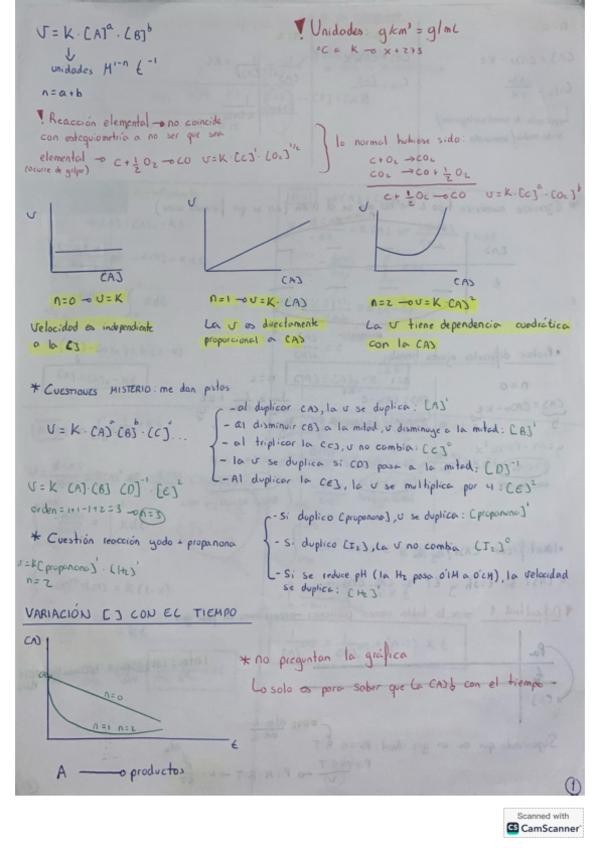 v = K · [A]^a · [B]^b
↓
unidades M^1-n t^-1
n = a+b
! Unidades: g/cm³ = g/mL
ºC a K → x + 273
! Reacción elemental → no coincide
con estequiometría a no ser que sea
elemental → C + 1/2 O₂ → CO v = K · [C]^1 · [O₂]^1/2
(ocurre de golpe)
lo normal hubiese sido:
C + O₂ → CO₂
CO₂ → CO + 1/2 O₂
C + 1/2 O₂ → CO v = K · [C]^a · [O₂]^b
v
[A]
v
[A]
v
[A]
n=0 → v = K
n=1 → v = K · [A]
n=2 → v = K · [A]²
Velocidad es independiente
a la [ ]
La v es directamente
proporcional a [A]
La v tiene dependencia cuadrática
con la [A]
* CUESTIONES MISTERIO: me dan pistas
v = K · [A]^a · [B]^b · [C]^c ...
- al duplicar [A], la v se duplica: [A]^1
- Al disminuir [B] a la mitad, v disminuye a la mitad: [B]^1
- al triplicar la [C], v no cambia: [C]^0
- la v se duplica si [D] pasa a la mitad: [D]^-1
- Al duplicar la [E], la v se multiplica por 4: [E]²
v = K · [A] · [B] · [D]^-1 · [E]²
orden = 1+1-1+2 = 3 → n=3
* Cuestión reacción yodo + propanona
v = K [propanona]^1 · [H₂]^1
n = 2
- Si duplico [propanona], v se duplica: [propanona]^1
- Si duplico [I₂], la v no cambia [I₂]^0
- Si se reduce pH (la H₂ pasa 0'1M a 0'2M), la velocidad
se duplica: [H₂]^1
VARIACIÓN [ ] CON EL TIEMPO
[A]
n=0
n=1 n=2
t
* no preguntan la gráfica
↳ solo es para saber que la [A]↓ con el tiempo
A → productos
1
Scanned with
CS CamScanner